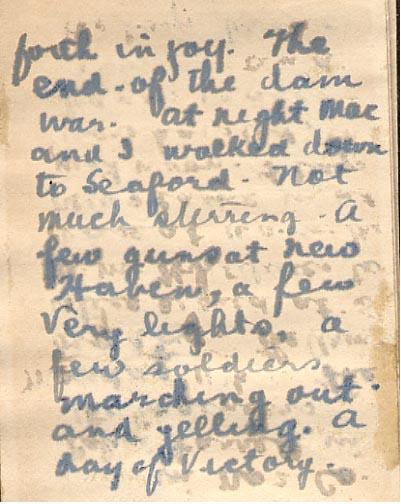 forth in joy. The
end of the dam
war. At night Mac
and I walked down
to Seaford. Not
much stirring. A
few guns at new
Haven, a few
Very lights, a
few soldiers
marching out
and yelling. A
day of Victory.